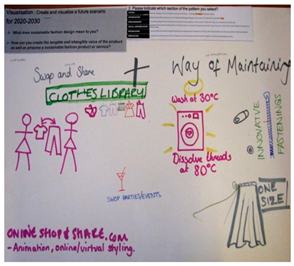 Visualisation : Create and visualize a future scenario
for 2020-2030
What does sustainable fashion design mean to you?
How can you create the tangible and intangible value of the product
as well as propose a sustainable fashion product or service?
2. Please indicate which section of the pattern you select?
Swop and Share
CLOTHES LIBRARY
+
Way of Maintaining
Wash at 30°C
Dissolve threads
at 80°C
INNOVATIVE
FASTENINGS
SWOP PARTIES/EVENTS
ONE
SIZE
ONLINESHOP&SHARE.COM
- Animation, online/virtual styling.